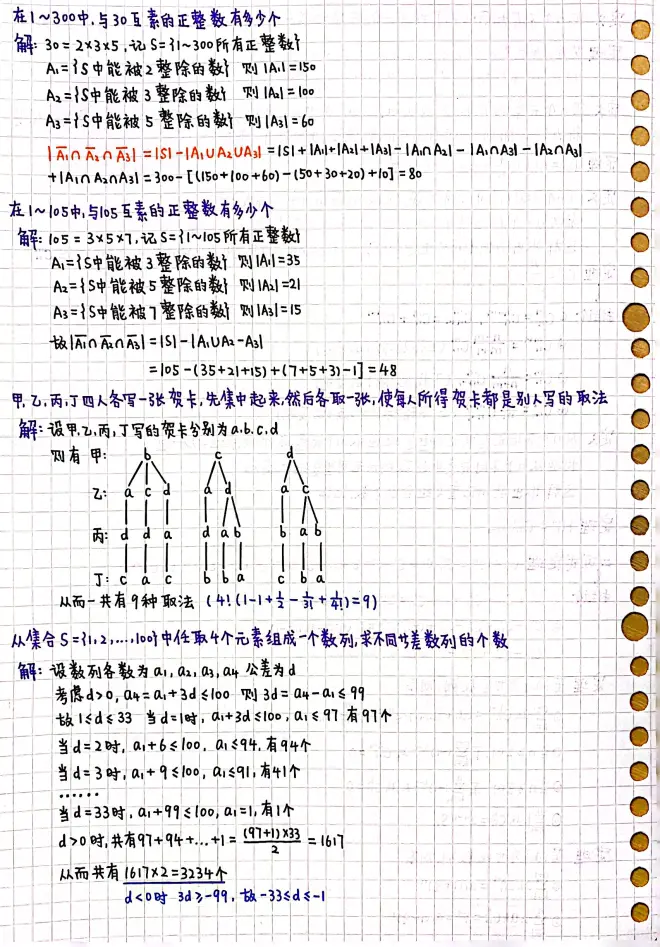 在1~300中,与30互素的正整数有多少个
解: 30=2×3×5,记S={1~300所有正整数}
A₁={S中能被2整除的数} 则|A₁|=150
A₂={S中能被3整除的数} 则|A₂|=100
A₃={S中能被5整除的数} 则|A₃|=60
|A̅₁∩A̅₂∩A̅₃|=|S|-|A₁∪A₂∪A₃|=|S|+|A₁|+|A₂|+|A₃|-|A₁∩A₂|-|A₁∩A₃|-|A₂∩A₃|
+|A₁∩A₂∩A₃|=300-[(150+100+60)-(50+30+20)+10]=80
在1~105中,与105互素的正整数有多少个
解: 105=3×5×7,记S={1~105所有正整数}
A₁={S中能被3整除的数} 则|A₁|=35
A₂={S中能被5整除的数} 则|A₂|=21
A₃={S中能被7整除的数} 则|A₃|=15
故|A̅₁∩A̅₂∩A̅₃|=|S|-|A₁∪A₂-A₃|
=105-(35+21+15)+(7+5+3)-1]=48
甲,乙,丙,丁四人各写一张贺卡,先集中起来,然后各取一张,使每人所得贺卡都是别人写的取法
解: 设甲,乙,丙,丁写的贺卡分别为a,b,c,d
则有 甲: b c d
乙: a c d a d a c
丙: d d a d a b b a b
丁: c a c b b a c b a
从而一共有9种取法 (4!(1-1+1/2-1/3!+1/4!)=9)
从集合S={1,2,...,100}中任取4个元素组成一个数列,求不同等差数列的个数
解: 设数列各数为a₁,a₂,a₃,a₄ 公差为d
考虑d>0, a₄=a₁+3d≤100 则3d=a₄-a₁≤99
故1≤d≤33 当d=1时, a₁+3d≤100, a₁≤97 有97个
当d=2时, a₁+6≤100, a₁≤94, 有94个
当d=3时, a₁+9≤100, a₁≤91, 有41个
......
当d=33时, a₁+99≤100, a₁=1, 有1个
d>0时,共有97+94+...+1=(97+1)×33/2=1617
从而共有1617×2=3234个
d<0时 3d≥-99, 故-33≤d≤-1